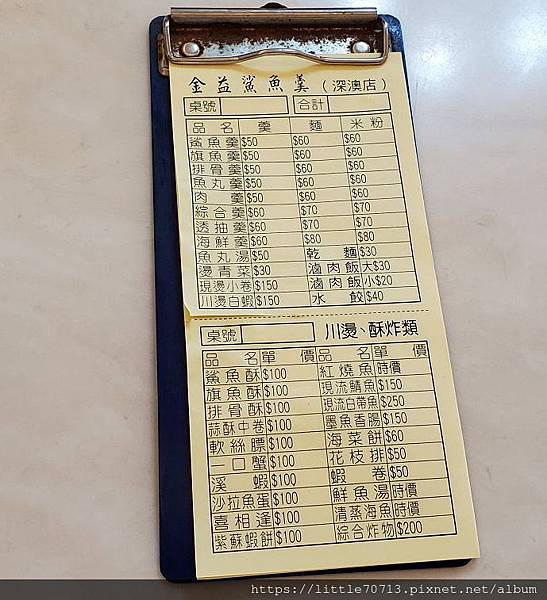 金益鯊魚羹(深澳店)
桌號 合計
品名 羹 麵 米粉
鯊魚羹 $50 $60 $60
旗魚羹 $50 $60 $60
排骨羹 $50 $60 $60
魚丸羹 $50 $60 $60
肉羹 $50 $60 $60
綜合羹 $60 $70 $70
透抽羹 $60 $70 $70
海鮮羹 $60 $80 $80
魚丸湯 $50 乾麵 $30
燙青菜 $30 滷肉飯 大$30
現燙小卷 $150 滷肉飯 小$20
川燙白蝦 $150 水餃 $40
桌號 川燙、酥炸類
品名 單價 品名 單價
鯊魚酥 $100 紅燒魚 時價
旗魚酥 $100 現流鯖魚 $150
排骨酥 $100 現流白帶魚 $250
蒜酥中卷 $100 墨魚香腸 $150
軟絲膘 $100 海菜餅 $60
一口蟹 $100 花枝排 $50
溪蝦 $100 蝦卷 $50
沙拉魚蛋 $100 鮮魚湯 時價
喜相逢 $100 清蒸海魚 時價
紫蘇蝦餅 $100 綜合炸物 $200
https://little70713.pixnet.net/album